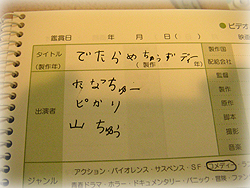 鑑賞日 年 月 日( )
ビデオ
タイトル
(製作年)
でたらめちゅうずでー
(製作 年)
製作国
配給会社
監督
製作
原作
脚本
撮影
音楽
出演者
れなっちゅー
ピかり
山ちゅう
ジャンル
アクション・バイオレンス・サスペンス・SF・コメディー
青春ドラマ・ホラー・ドキュメンタリー・パニック・冒険・ファン